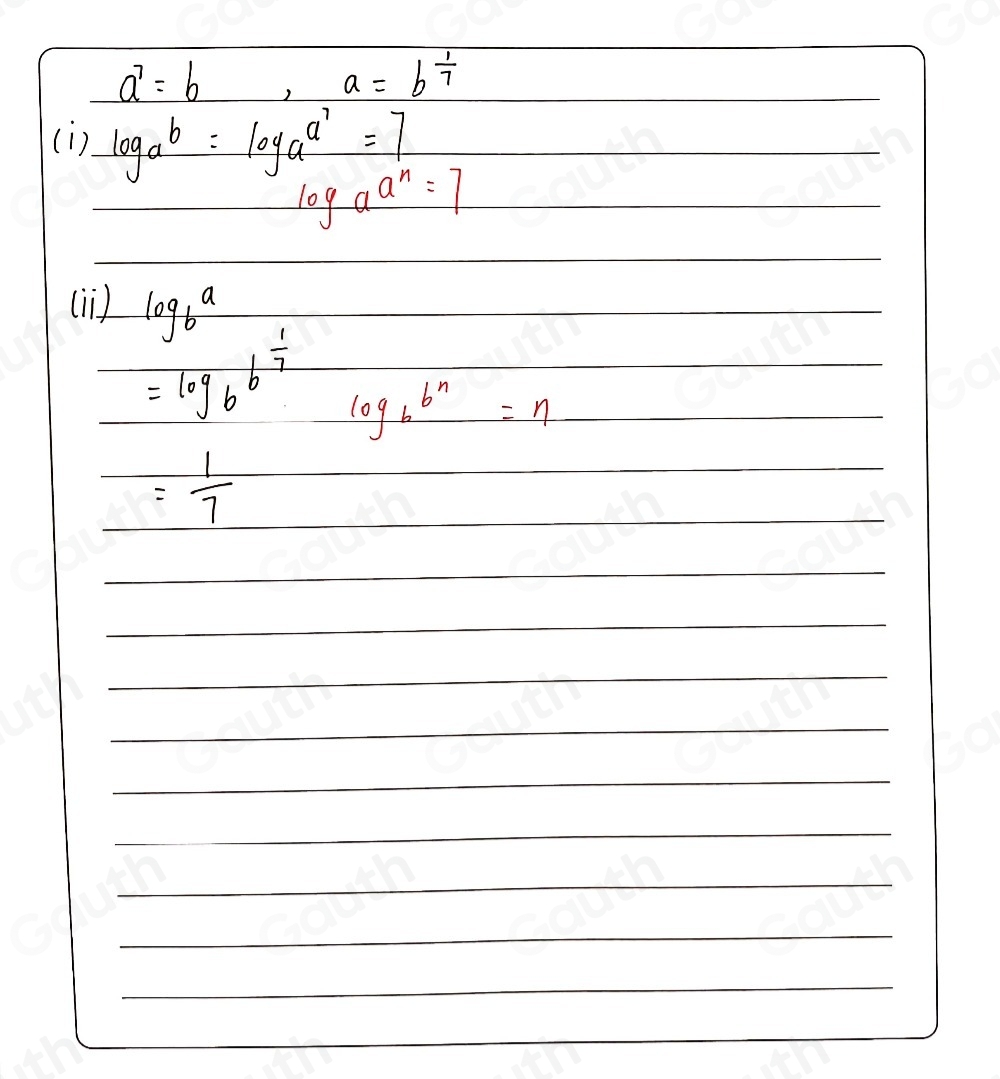 a⁷ = b , a = b^(1/7)
(i) log_a b = log_a a⁷ = 7
log_a aⁿ = 7
(ii) log_b a
= log_b b^(1/7) log_b bⁿ = n
= 1/7